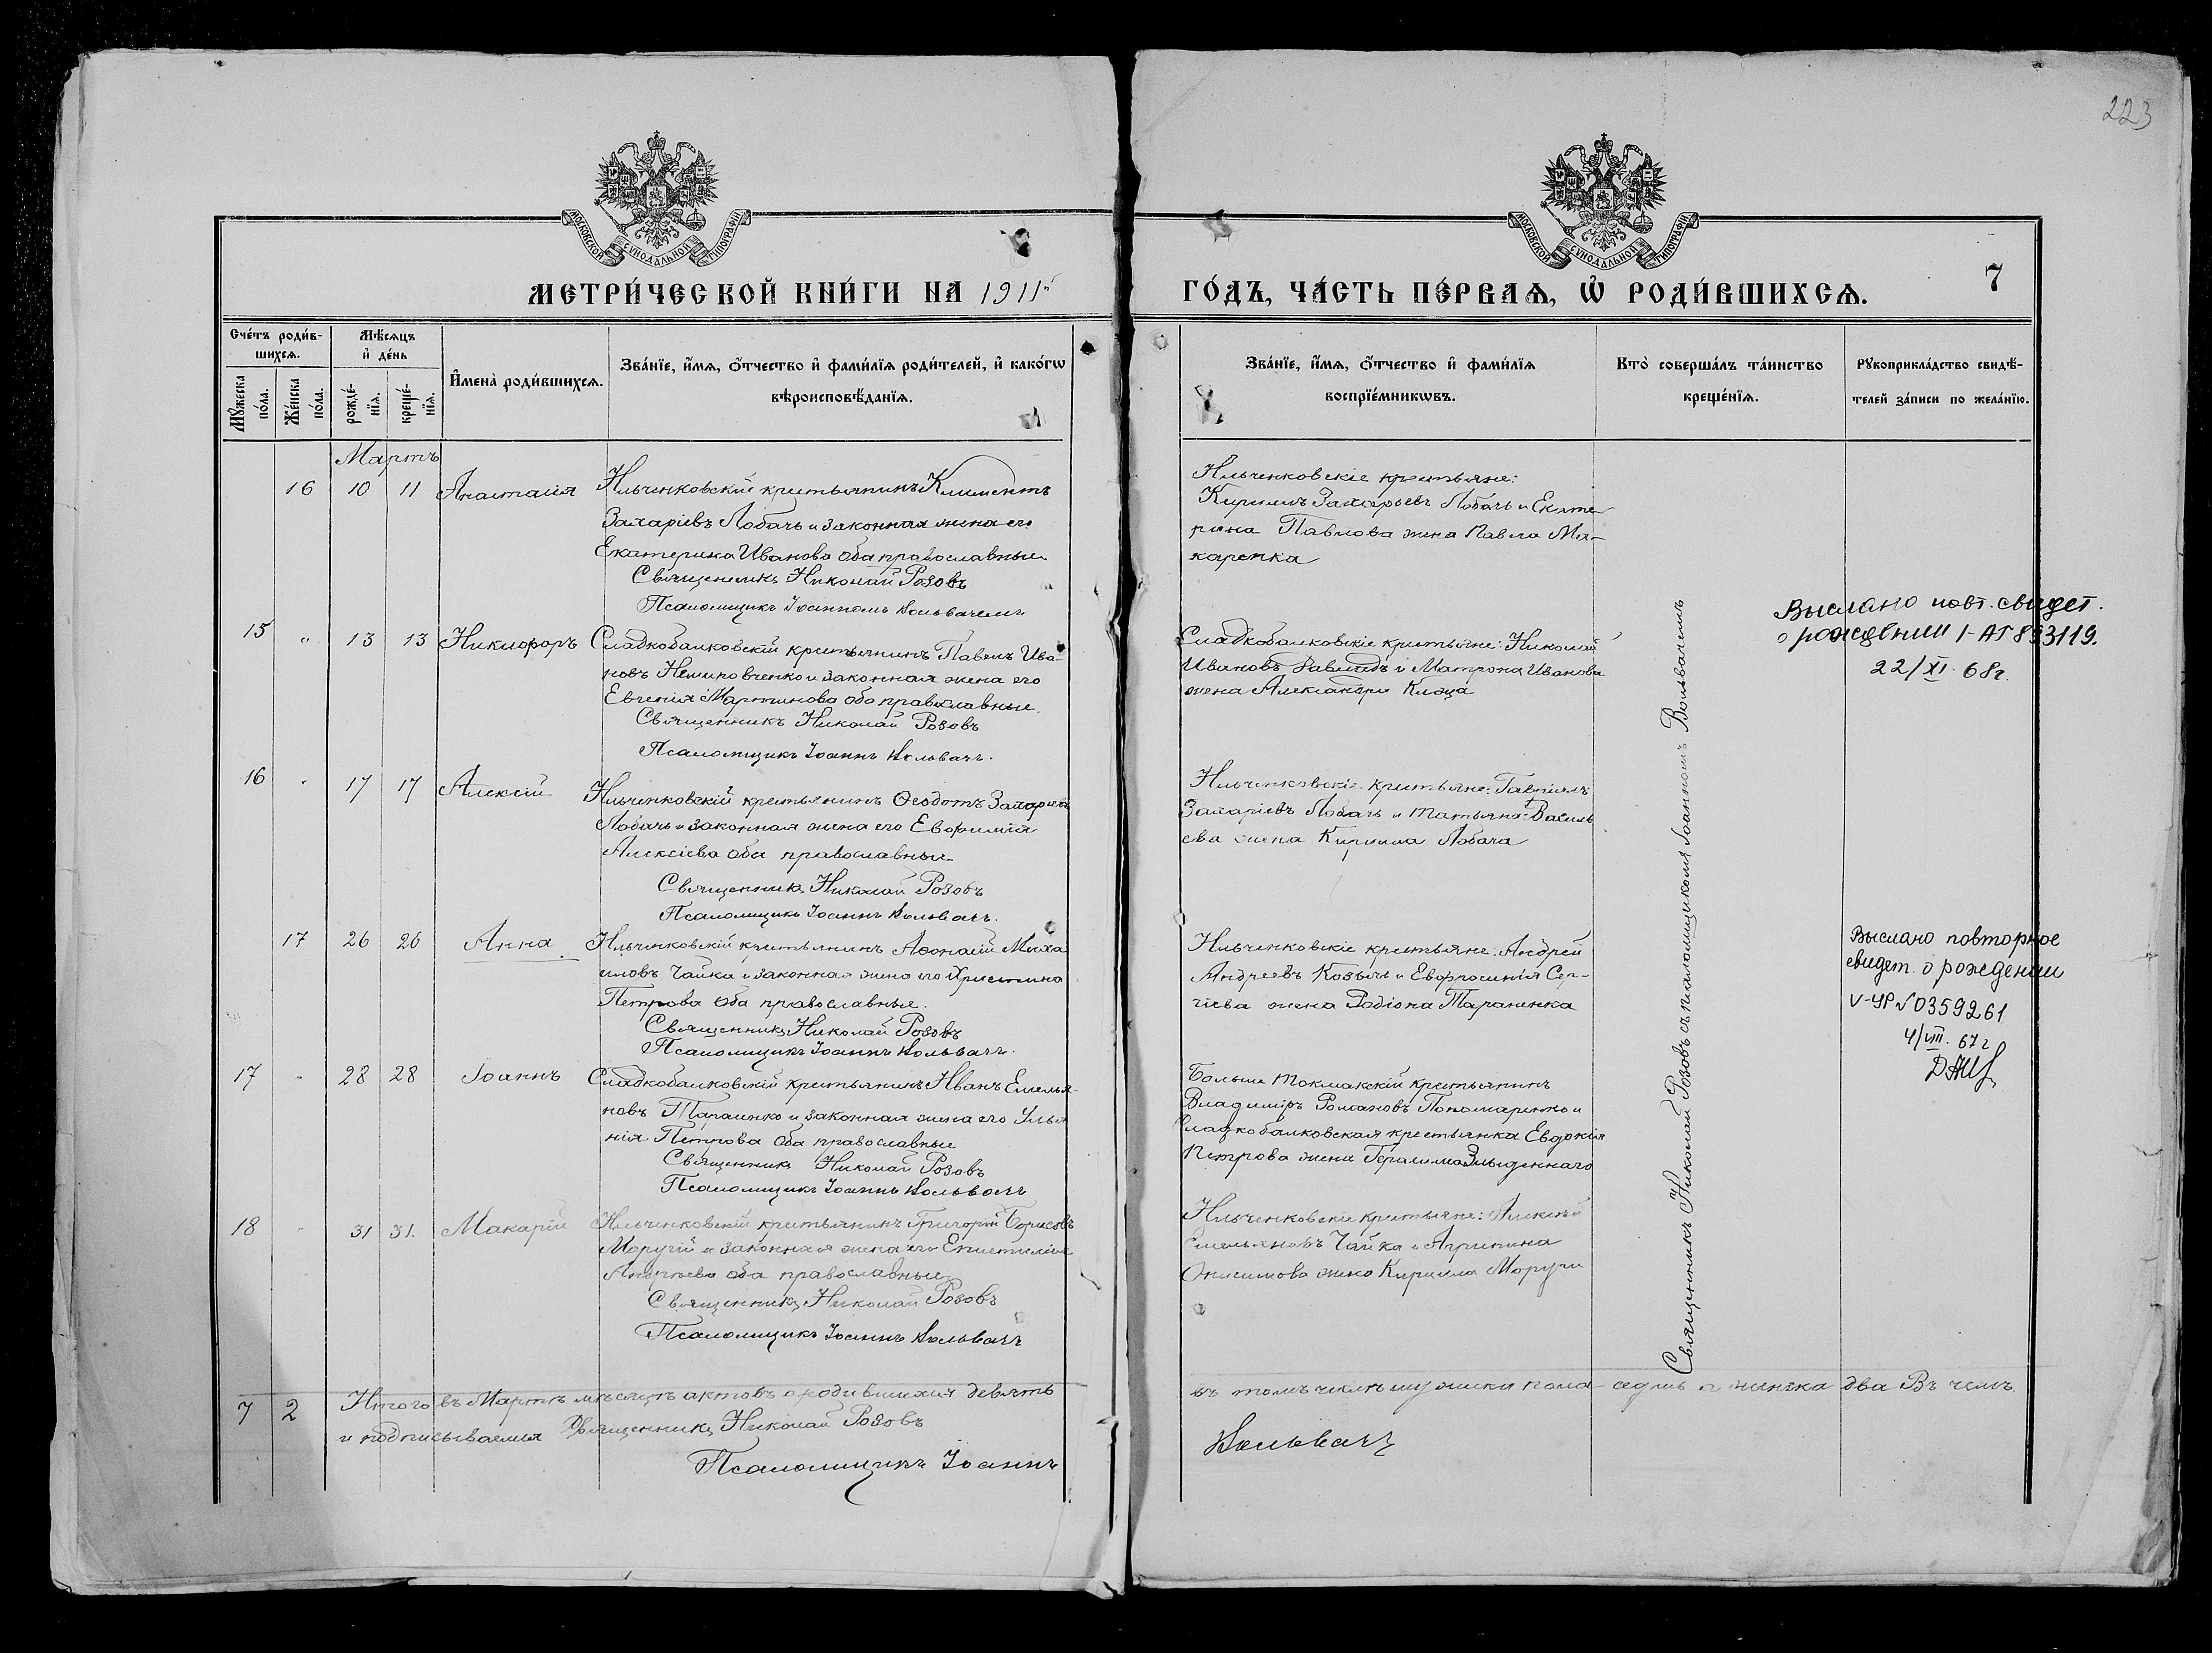 223
МОСКОВСКОЙ СѴНОДАЛЬНОЙ ТИПОГРАФІИ
МОСКОВСКОЙ СѴНОДАЛЬНОЙ ТИПОГРАФІИ
7
МЕТРИ́ЧЕСКОЙ КНИ́ГИ НА 1911й
ГО́ДЪ, ЧА́СТЬ ПЕ́РВАѦ, Ѡ҆ РОДИ́ВШИХСѦ.
Счéтъ роди́в-
шихсѧ.
Мꙋ́жеска по́ла.
Же́нска по́ла.
Мѣ́сѧцъ
и҆ де́нь
рожде́-нїѧ.
креще́-нїѧ.
И҆мена̀ роди́вшихсѧ.
Зва́нїе, и҆́мѧ, ѻ҆́тчество и҆ фами́лїѧ роди́телей, и҆ како́гѡ
вѣроисповѣ́данїѧ.
Зва́нїе, и҆́мѧ, ѻ҆́тчество и҆ фами́лїѧ
воспрїе́мникѡвъ.
Кто̀ соверша́лъ та́инство
креще́нїѧ.
Рꙋкоприкла́дство свидѣ́-
телей за́писи по жела́нїю.
Мартъ
16 10 11 Анастасія
Ильченковскій крестьянинъ Климентъ
Захаріевъ Лобачъ и законная жена его
Екатерина Иванова оба православные
Священникъ Николай Розовъ
Псаломщикъ Іоанномъ Вольвачемъ
Ильченковскіе крестьяне:
Кириллъ Захарьевъ Лобачъ и Екате-
рина Павлова жена Павла Ма-
каренка
15 " 13 13 Никифоръ
Сладкобалковскій крестьянинъ Павелъ Ива-
новъ и законная жена его
Евгенія Мартинова оба православные.
Священникъ Николай Розовъ
Псаломщикъ Іоаннъ Вольвачъ.
Сладкобалковскіе крестьяне: Николай
Ивановъ и Матрона Иванова
жена Александра
Выслано повт. свидет.
о рождении I-АП 893119.
22/XI. 68г.
16 " 17 17 Алексій
Ильченковскій крестьянинъ Ѳеодотъ Захаріевъ
Лобачъ и законная жена его Евфимія
Алексіева оба православные
Священникъ Николай Розовъ
Псаломщикъ Іоаннъ Вольвачъ.
Ильченковскіе крестьяне: Гавріилъ
Захаріевъ Лобачъ и Татьяна Василь
ева жена Кирилла Лобача
17 26 26 Анна
Ильченковскій крестьянинъ Аѳонасій Миха
иловъ Чайка и законная жена его Христина
Петрова оба православные.
Священникъ Николай Розовъ
Псаломщикъ Іоаннъ Вольвачъ.
Ильченковскіе крестьяне: Андрей
Андреевъ Козылъ и Евфросинія Сер-
гіева жена Родіона Тараненка
Выслано повторное
свидет. о рождении
V-УР №0359261
4/VIII. 67г
17 " 28 28 Іоаннъ
Сладкобалковскій крестьянинъ Иванъ Емелья-
новъ и законная жена его Улья
нія Петрова оба православные
Священникъ Николай Розовъ
Псаломщикъ Іоаннъ Вольвачъ
Больше Токмакскій крестьянинъ
Владиміръ Романовъ Пономаренко и
Сладкобалковская крестьянка Евдокія
Петрова жена Герасима
18 " 31 31. Макарій
Ильченковскій крестьянинъ Григорій Борисовъ
Моругій и законная жена его Епистимія
Андреева оба православные
Священникъ Николай Розовъ
Псаломщикъ Іоаннъ Вольвачъ
Ильченковскіе крестьяне: Алексѣй
Емельяновъ Чайка и Агрипина
Онисимова жена Кирилла Моруги
Священникъ Николай Розовъ съ псаломщикомъ Іоанномъ Вольвачемъ
7 2 Итого въ Мартѣ мѣсяцѣ актовъ о родившихся девять
въ томъ числѣ мужеска пола седмь а женска два Въ чемъ
и подписываемся Священникъ Николай Розовъ
Псаломщикъ Іоаннъ
Вольвачъ